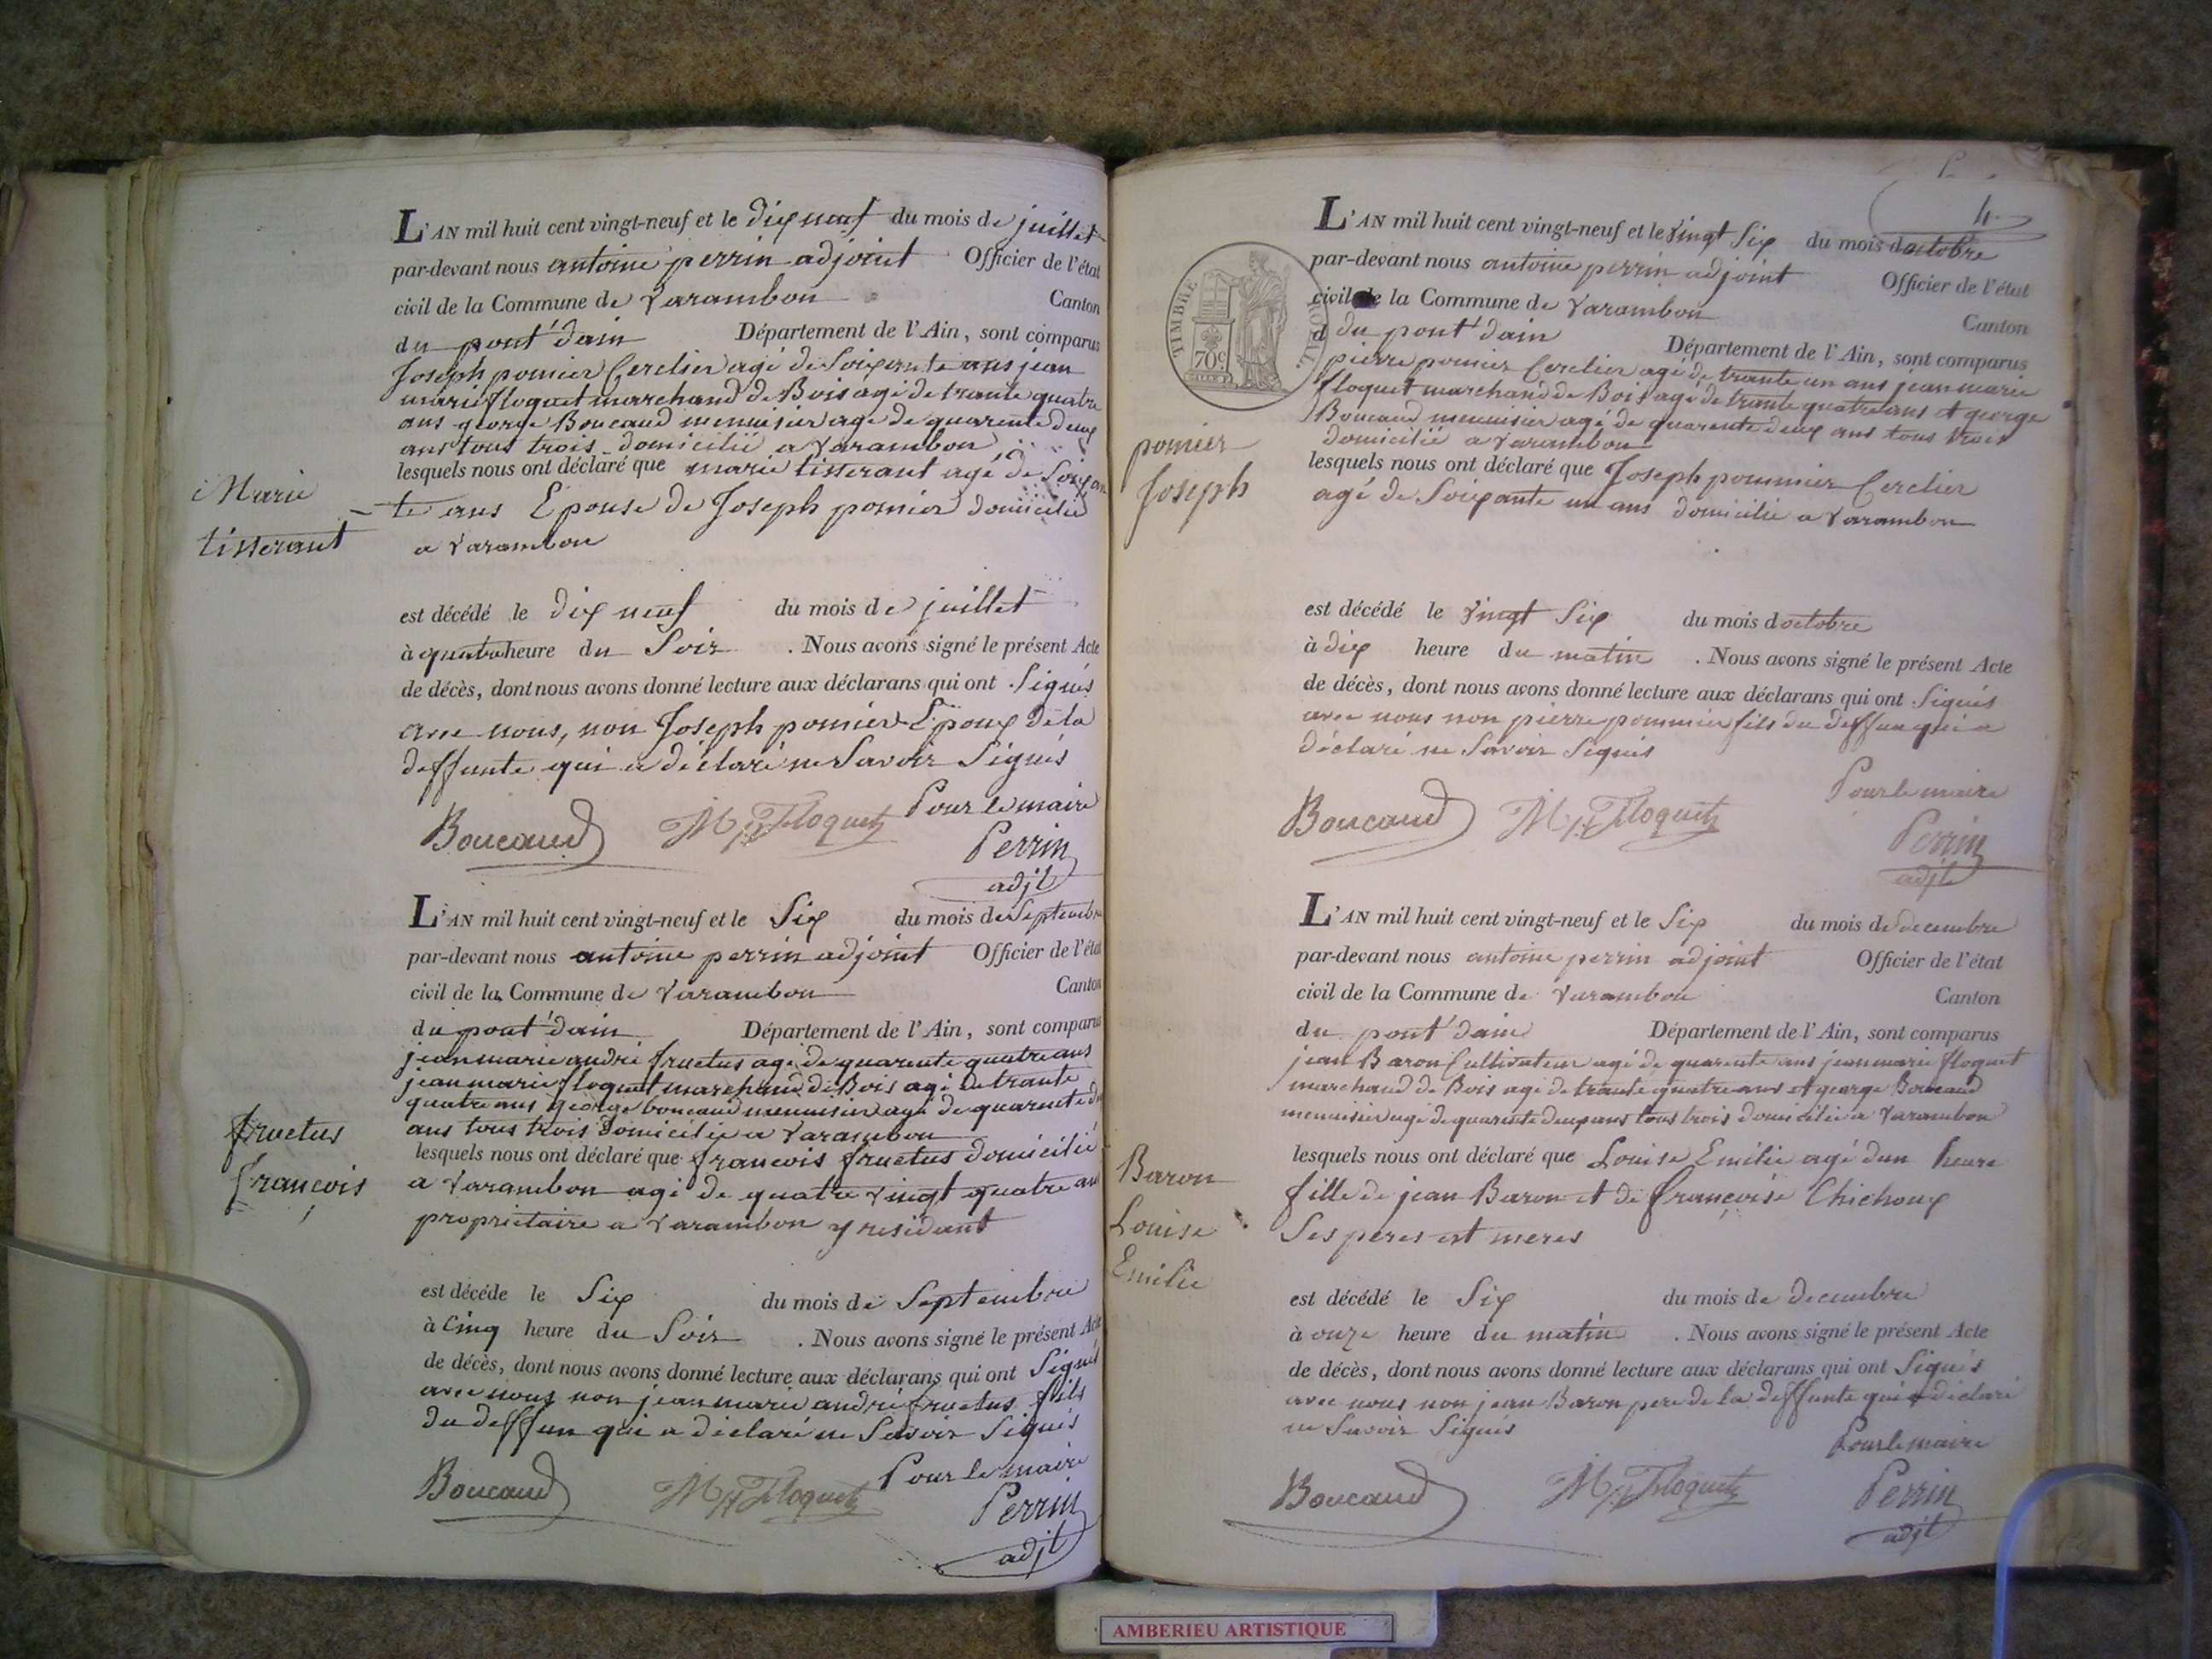 Marie
tisserant
L'AN mil huit cent vingt-neuf et le dix neuf du mois de juillet
par-devant nous antoine perrin adjoint Officier de l'état
civil de la Commune de Varambon Canton
du pont d'ain Département de l'Ain, sont comparus
Joseph pomier Cerclier agé de Soixante ans jean
marie floquet marchand de Bois agé de trante quatre
ans george Boucaud menuisier agé de quarente deux
ans tous trois domicilié a Varambon
lesquels nous ont déclaré que marie tisserant agé de Soixan
te ans Epouse de Joseph pomier domicilié
a Varambon
est décédé le dix neuf du mois de juillet
à quatre heure du Soir . Nous avons signé le présent Acte
de décès, dont nous avons donné lecture aux déclarans qui ont Signés
avec nous, non Joseph pomier Epoux de la
deffunte qui a déclaré ne Savoir Signés
Pour le maire
Boucaud M Floquet Perrin
adjt
fructus
françois
L'AN mil huit cent vingt-neuf et le Six du mois de Septembre
par-devant nous antoine perrin adjoint Officier de l'état
civil de la Commune de Varambon Canton
du pont d'ain Département de l'Ain, sont comparus
jean marie andré fructus agé de quarente quatre ans
jean marie floquet marchand de Bois agé de trante
quatre ans george boucaud menuisier agé de quarente d
ans tous trois domicilié a Varambon
lesquels nous ont déclaré que françois fructus domicilié
a Varambon agé de quatre vingt quatre ans
proprietaire a Varambon y residant
est décédé le Six du mois de Septembre
à Cinq heure du Soir . Nous avons signé le présent Acte
de décès, dont nous avons donné lecture aux déclarans qui ont Signés
avec nous non jean marie andré fructus fils
du deffun qui a déclaré ne Savoir Signés
Pour le maire
Boucaud M Floquet Perrin
adjt
4
TIMBRE ROYAL
70c
pomier
Joseph
L'AN mil huit cent vingt-neuf et le vingt Six du mois doctobre
par-devant nous antoine perrin adjoint Officier de l'état
civil de la Commune de Varambon Canton
d du pont d'ain Département de l'Ain, sont comparus
pierre pomier Cerclier agé de trante un ans jean marie
floquet marchand de Bois agé de trante quatre ans et george
Boucaud menuisier agé de quarente deux ans tous trois
domicilié a Varambon
lesquels nous ont déclaré que Joseph pommier Cerclier
agé de Soixante un ans domicilié a Varambon
est décédé le vingt Six du mois doctobre
à dix heure du matin . Nous avons signé le présent Acte
de décès, dont nous avons donné lecture aux déclarans qui ont Signés
avec nous non pierre pommier fils du deffun qui a
déclaré ne Savoir Signés
Pour le maire
Boucaud M Floquet Perrin
adjt
Baron
Louise
Emilie
L'AN mil huit cent vingt-neuf et le Six du mois de decembre
par-devant nous antoine perrin adjoint Officier de l'état
civil de la Commune de Varambon Canton
du pont d'ain Département de l'Ain, sont comparus
jean Baron Cultivateur agé de quarente ans jean marie floquet
marchand de Bois agé de trante quatre ans et george Boucaud
menuisier agé de quarente deux ans tous trois domicilié a Varambon
lesquels nous ont déclaré que Louise Emilie agé dun heure
fille de jean Baron et de françoise Chichoux
Ses peres et meres
est décédé le Six du mois de decembre
à onze heure du matin . Nous avons signé le présent Acte
de décès, dont nous avons donné lecture aux déclarans qui ont Signés
avec nous non jean Baron pere de la deffunte qui a déclaré
ne Savoir Signés
Pour le maire
Boucaud M Floquet Perrin
adjt
AMBERIEU ARTISTIQUE